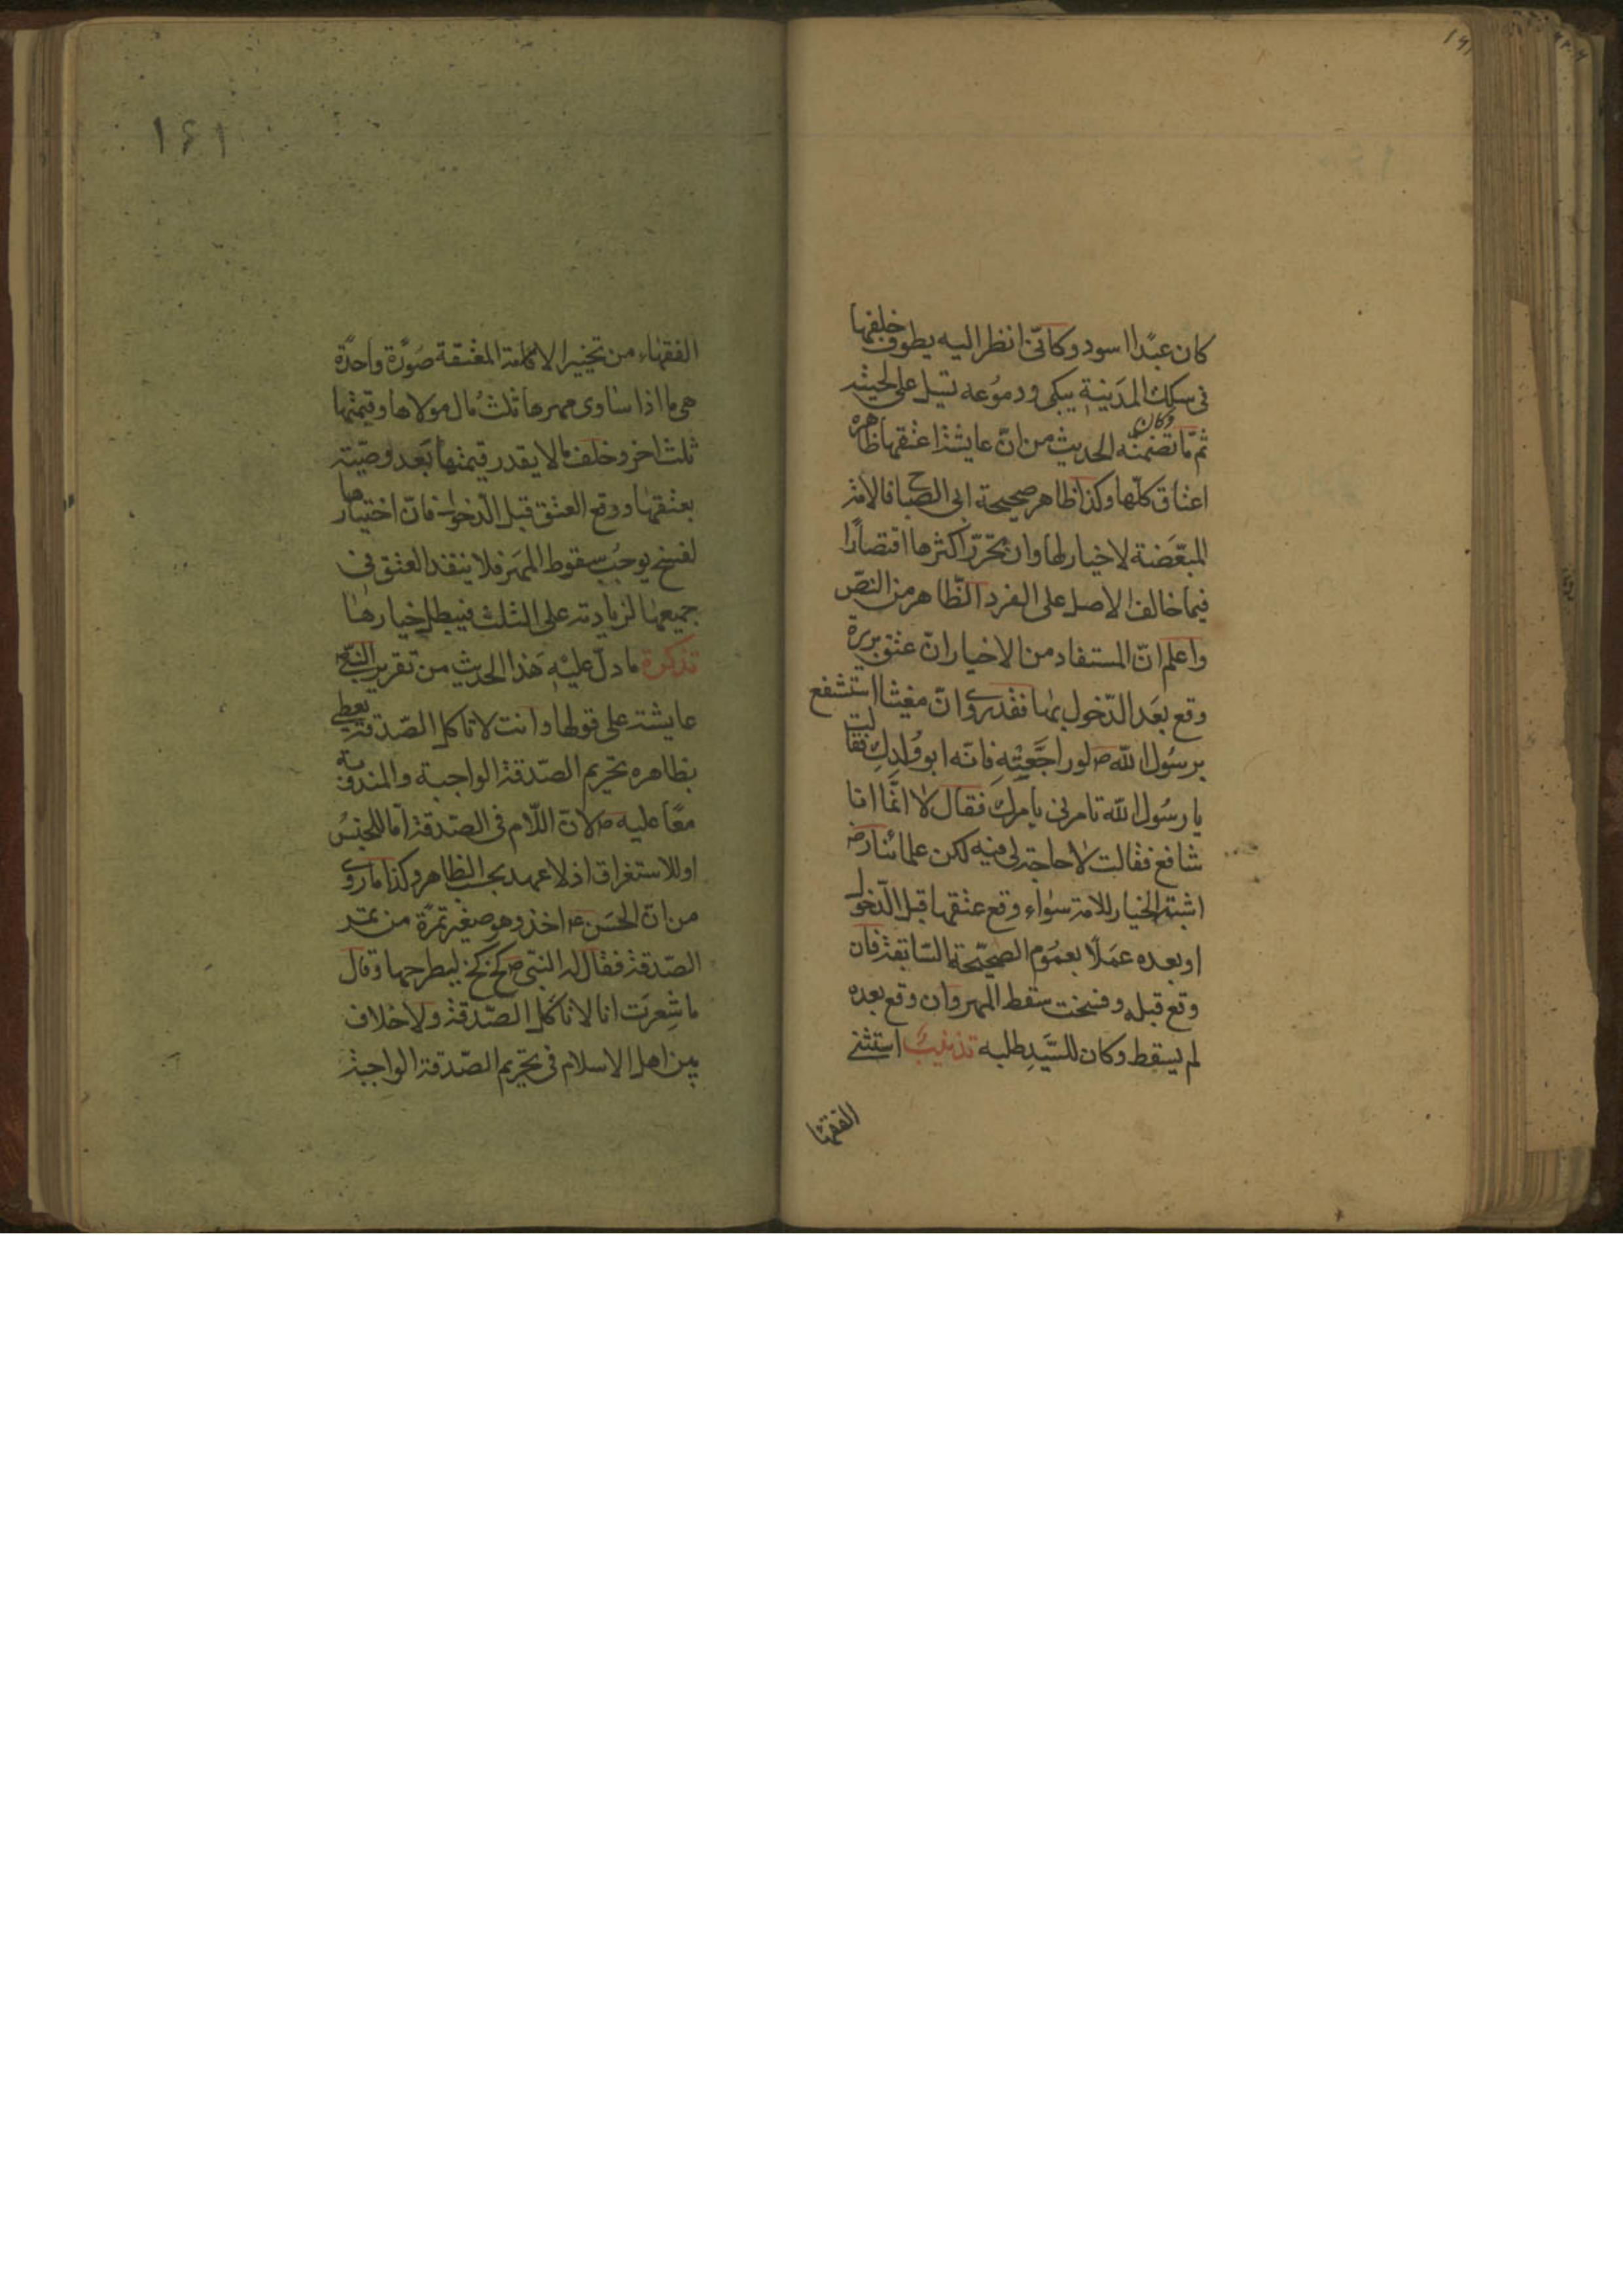 كان عبدا اسود وكانّى انظر اليه يطوف خلفها
فى سكك المدينة يبكى ودموعه تسيل على لحيته
ثمّ ما تضمنّه الحديث من انّ عايشة اعتقتها ظاهره وكان
اعتاق كلّها وكذا ظاهر صحيحة ابى الصباح فالامة
المبعّضة لا خيار لها وان تحرّر اكثرها اقتصارا
فيما خالف الاصل على الفرد الظّاهر من النصّ
واعلم انّ المستفاد من الاخبار انّ عتق بريرة
وقع بعد الدّخول بها فقد روى انّ مغيثا استشفع
برسول الله ص لو راجعتيه فانّه ابو ولدك فقالت
يا رسول الله تامرنى بامرك فقال لا انّما انا
شافع فقالت لا حاجة لى فيه لكن علمائنا رض
اثبتوا الخيار للامة سواء وقع عتقها قبل الدّخول
او بعده عملا بعموم الصّحيحة السّابقة فان
وقع قبله وفسخت سقط المهر وان وقع بعده
لم يسقط وكان للسّيد طلبه تذنيب استثنى
الفقها
١٤١
الفقهاء من تخيير الامة المعتقة صورة واحدة
هى ما اذا ساوى مهرها ثلث مال مولاها وقيمتها
ثلث اخر وخلف ما لا يقدر قيمتها بعد وصيّته
بعتقها ووقع العتق قبل الدّخول فانّ اختيارها
لفسخ يوجب سقوط المهر فلا ينفذ العتق فى
جميعها لزيادته على الثلث فيبطل خيارها
تذكرة ما دلّ عليه هذا الحديث من تقرير النبىّ ص
عايشة على قولها وانت لا تاكل الصّدقة يعطى
بظاهره تحريم الصّدقة الواجبة والمندوبة
معا عليه ص لانّ اللّام فى الصّدقة امّا للجنس
او للاستغراق اذ لا عهد بحسب الظاهر وكذا ما روى
من انّ الحسن ع اخذ وهو صغير تمرة من تمر
الصّدقة فقال له النبىّ ص كخ كخ ليطرحها وقال
ما شعرت انا لا ناكل الصّدقة ولا خلاف
بين اهل الاسلام فى تحريم الصّدقة الواجبة